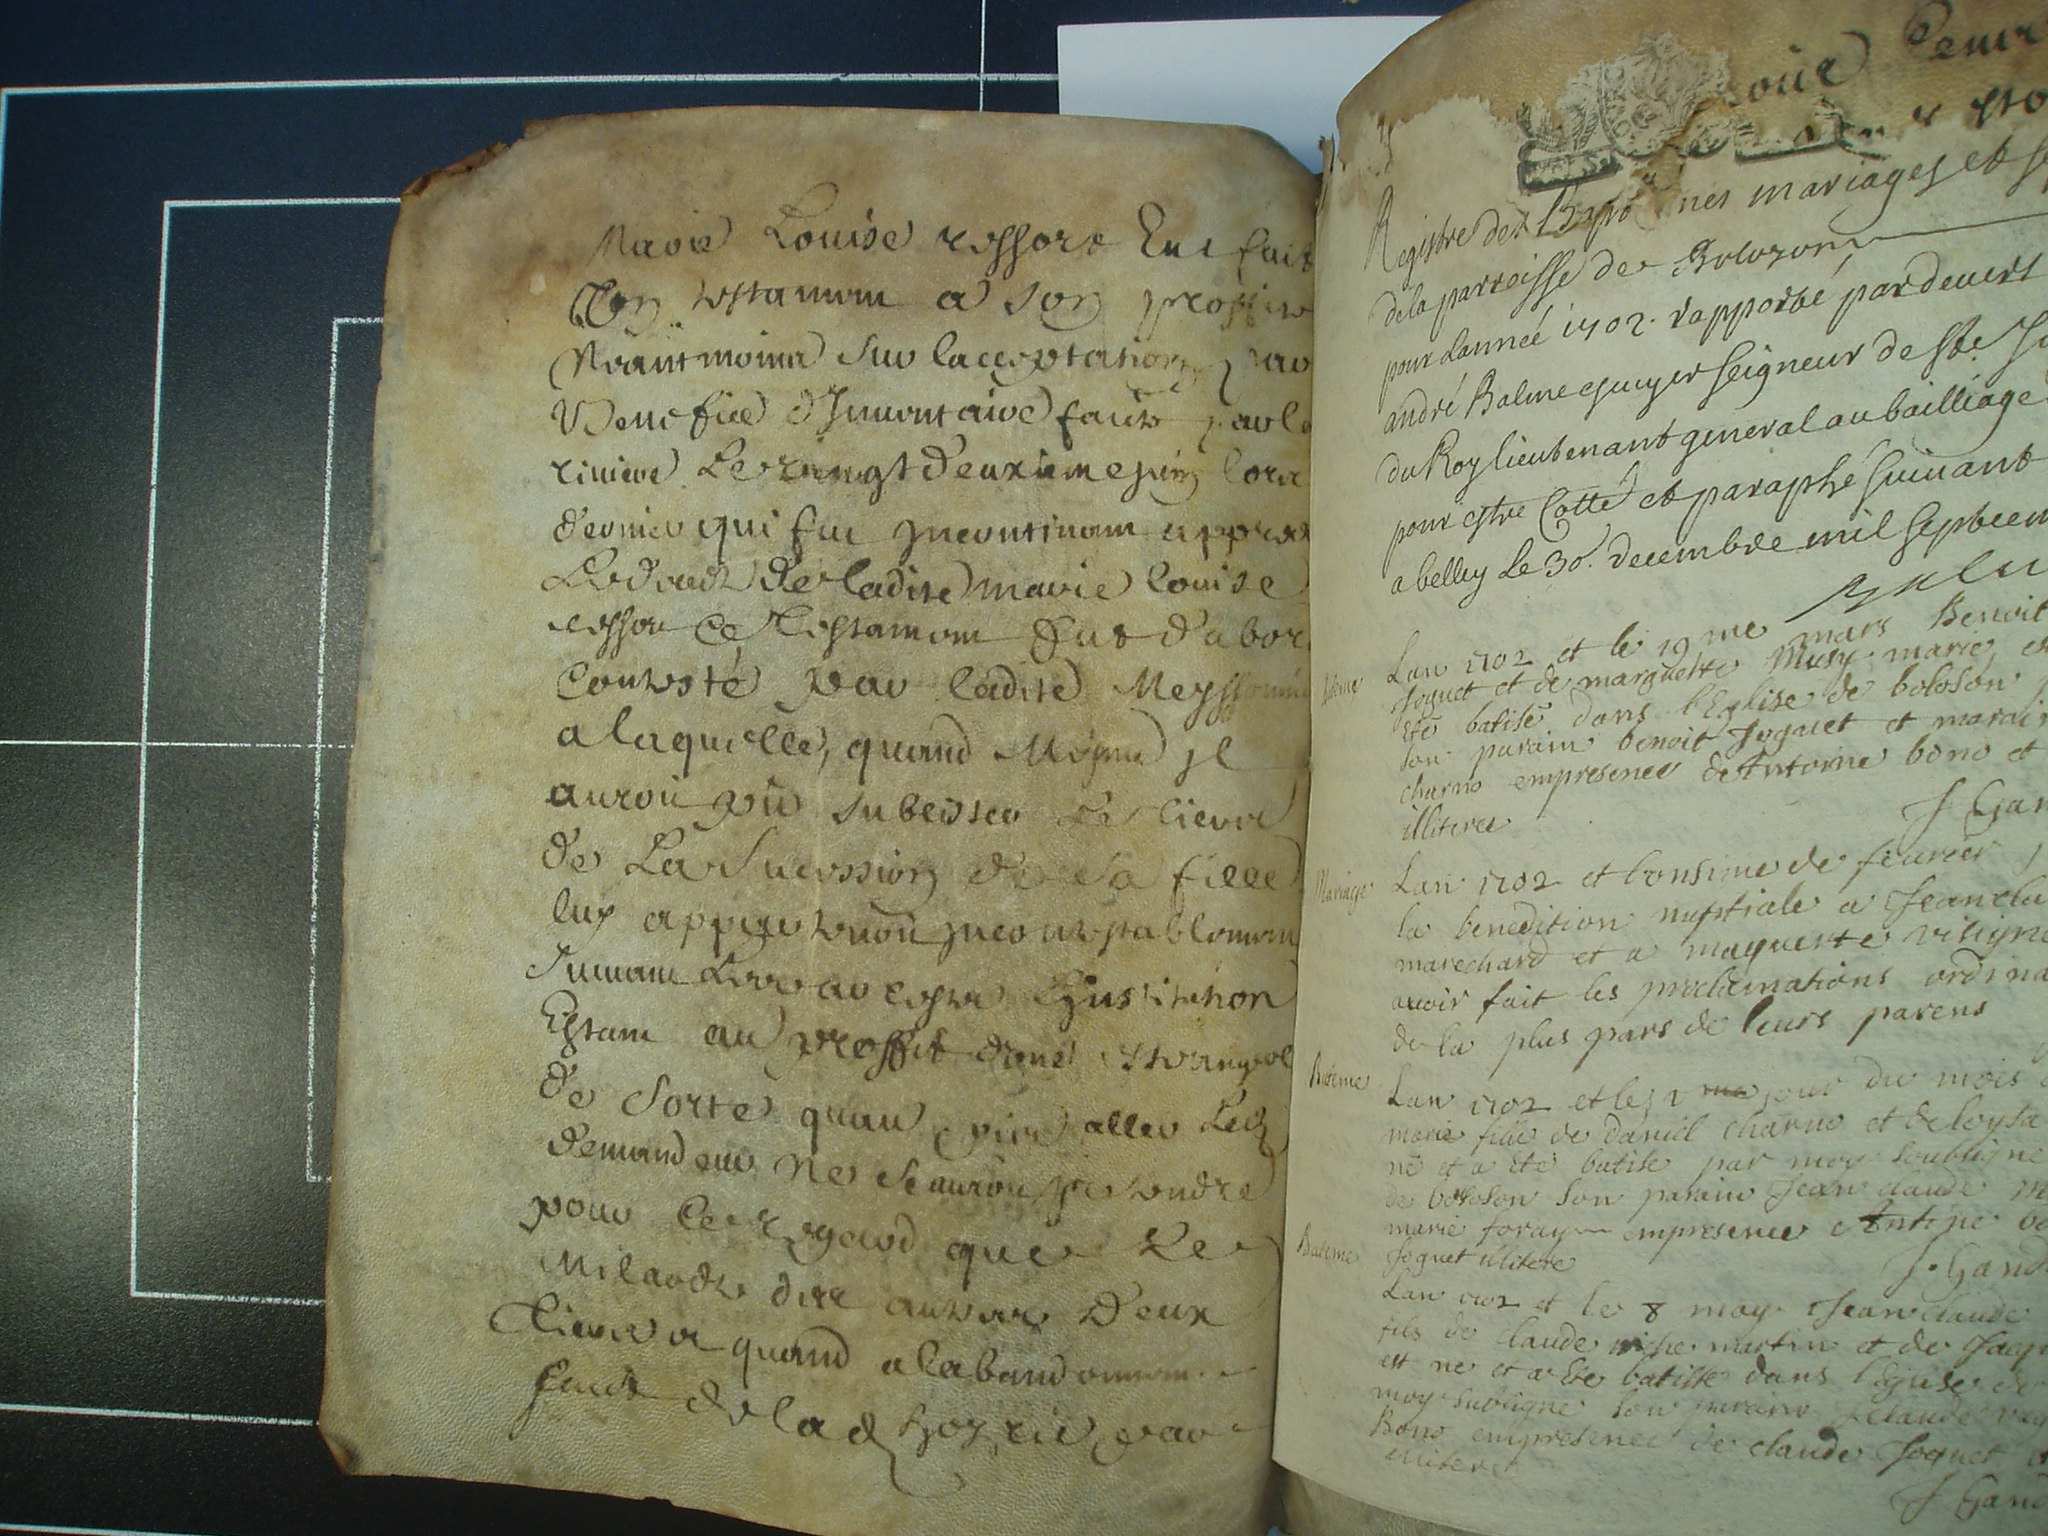 Marie Louise ressort Eut fait
son testamem a son proffit
Neantmoins sur lacceptation par
Benefice dInventaire faite par la
riniere Le vingt deuxieme juin lors
dernier qui fut Incontinam appres
Le deceds de ladite marie louise
ressort Ce testamem fut d'abor
Contesté par ladite Meyssonni
a laquelle, quand mesme Il
auroit pû subcister Le tiers
de La Sucession de Sa fille
luy appartenoit Incontestablemem
Suivam
Estam au proffit d'une Estrangere
de Sorte quau pire aller Led
demandeur Ne Scauroit pretendre
pour Ce regard que Le
des autres deux
tiers et quand a labandonnem
fait de la d hoyrie par
oüe
Registre des Bap mes mariages et
de la parroisse de Bolozon
pour lannée 1702. rapporté pardevert
andré Balme escuyer seigneur de Ste
du Roy lieutenant general au bailliage
pour estre Cotté et paraphé suivant
a belley Le 30. decembre mil septcen
Balme
Lan 1702 et le 19 me mars Benoit
Joguet et de marguette Musy marie
eté batisé dans l'Eglise de boloson
son parain benoit Joguet et marain
charno empresence de Antoine bono et
illiteres
J Gan
Mariage Lan 1702 et l'onsime de feurier
la benedition nuptiale a Jean cla
marechard et a maguette
avoir fait les proclamations ordina
de la plus pars de leurs parens
Bateme Lan 1702 et le jour du mois
marie fille de Daniel charno et de loysa
né et a eté batisé par moy soubsigne
de boloson son parain Jean claude
marie foray empresence Antoine bo
Joguet illitere
J. Gand
Bateme Lan 1702 et le 8 may Jean claude
fils de claude martin et de Jacq
est né et a été batisse dans l'Eglise de
moy subsigne son parain claude
Bono empresence de claude Joguet
illiteres
J Gand